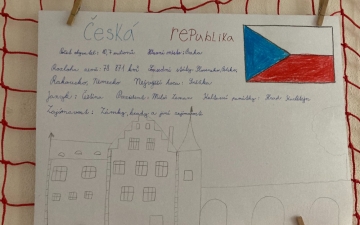 Česká republika
Počet obyvatel: 10,7 milionů Hlavní město: Praha
Rozloha: 78 871 km² Sousední státy: Slovensko, Polsko
Rakousko, Německo Nejvyšší hora: Sněžka
Jazyk: Čeština Prezident: Miloš Zeman Kulturní památky: Hrad Karlštejn
Zajímavosti: Zámky, hrady a jiné zajímavosti